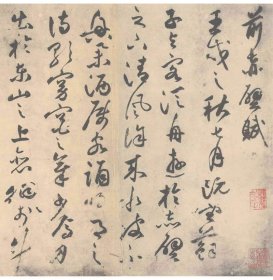 前赤壁賦
壬戌之秋七月既望蘇
子與客泛舟遊於赤壁
之下清風徐來水波不
興舉酒屬客誦明月之
詩歌窈窕之章少焉月
出於東山之上徘徊於斗